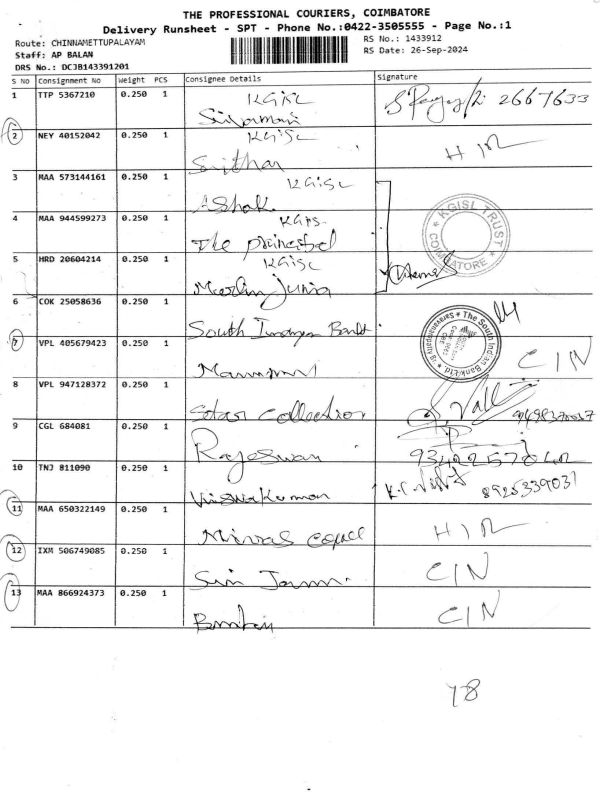 THE PROFESSIONAL COURIERS, COIMBATORE
Delivery Runsheet - SPT - Phone No.:0422-3505555 - Page No.:1
Route: CHINNAMETTUPALAYAM
RS No.: 1433912
Staff: AP BALAN
RS Date: 26-Sep-2024
DRS No.: DCJB143391201
S No Consignment No Weight PCS Consignee Details Signature
1 TTP 5367210 0.250 1 KGiSL 2667633
Sivamani
2 NEY 40152042 0.250 1 KGiSL
3 MAA 573144161 0.250 1 KGiSL
Ashok
4 MAA 944599273 0.250 1 KGiS
The principal
5 HRD 20604214 0.250 1 KGiSL
Merlin
KGISL TRUST
COIMBATORE
6 COK 25058636 0.250 1 South Indian Bank
The South Indian Bank Ltd.
7 VPL 405679423 0.250 1 CIN
8 VPL 947128372 0.250 1 Star Collection
9 CGL 684081 0.250 1 Rajeswari
10 TNJ 811090 0.250 1 8925339031
11 MAA 650322149 0.250 1
12 IXM 506749085 0.250 1 CIN
13 MAA 866924373 0.250 1 CIN
78